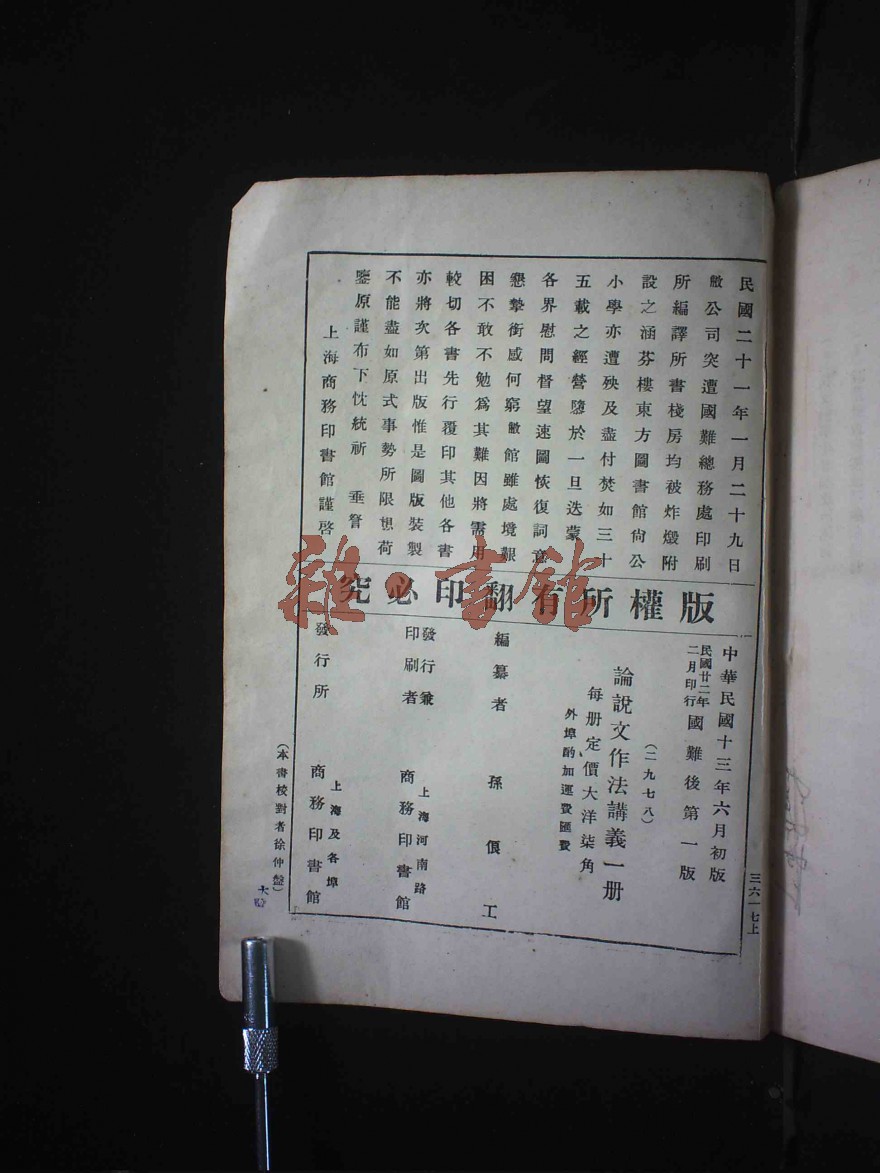 民國二十一年一月二十九日
敝公司突遭國難總務處印刷
所編譯所書棧房均被炸燬附
設之涵芬樓東方圖書館尙公
小學亦遭殃及盡付焚如三十
五載之經營隳於一旦迭蒙
各界慰問督望速圖恢復詞意
懇摯銜感何窮敝館雖處境艱
困不敢不勉爲其難因將需用
較切各書先行覆印其他各書
亦將次第出版惟是圖版裝製
不能盡如原式事勢所限想荷
鑒原謹布下忱統祈 垂詧
上海商務印書館謹啓
版權所有翻印必究
中華民國十三年六月初版
民國廿二年二月印行 國難後第一版
(二九七八)
論說文作法講義一册
每册定價大洋柒角
外埠酌加運費匯費
編纂者 孫俍工
發行兼印刷者 上海河南路 商務印書館
發行所 上海及各埠 商務印書館
(本書校對者徐仲盤)
三六一七上
雜·書館